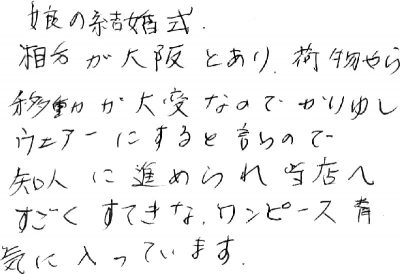 娘の結婚式.
相方が大阪とあり、荷物やら
移動が大変なのでかりゆし
ウェアーにすると言うので
知人に進められ当店へ
すごくすてきな、ワンピース
気に入っています.